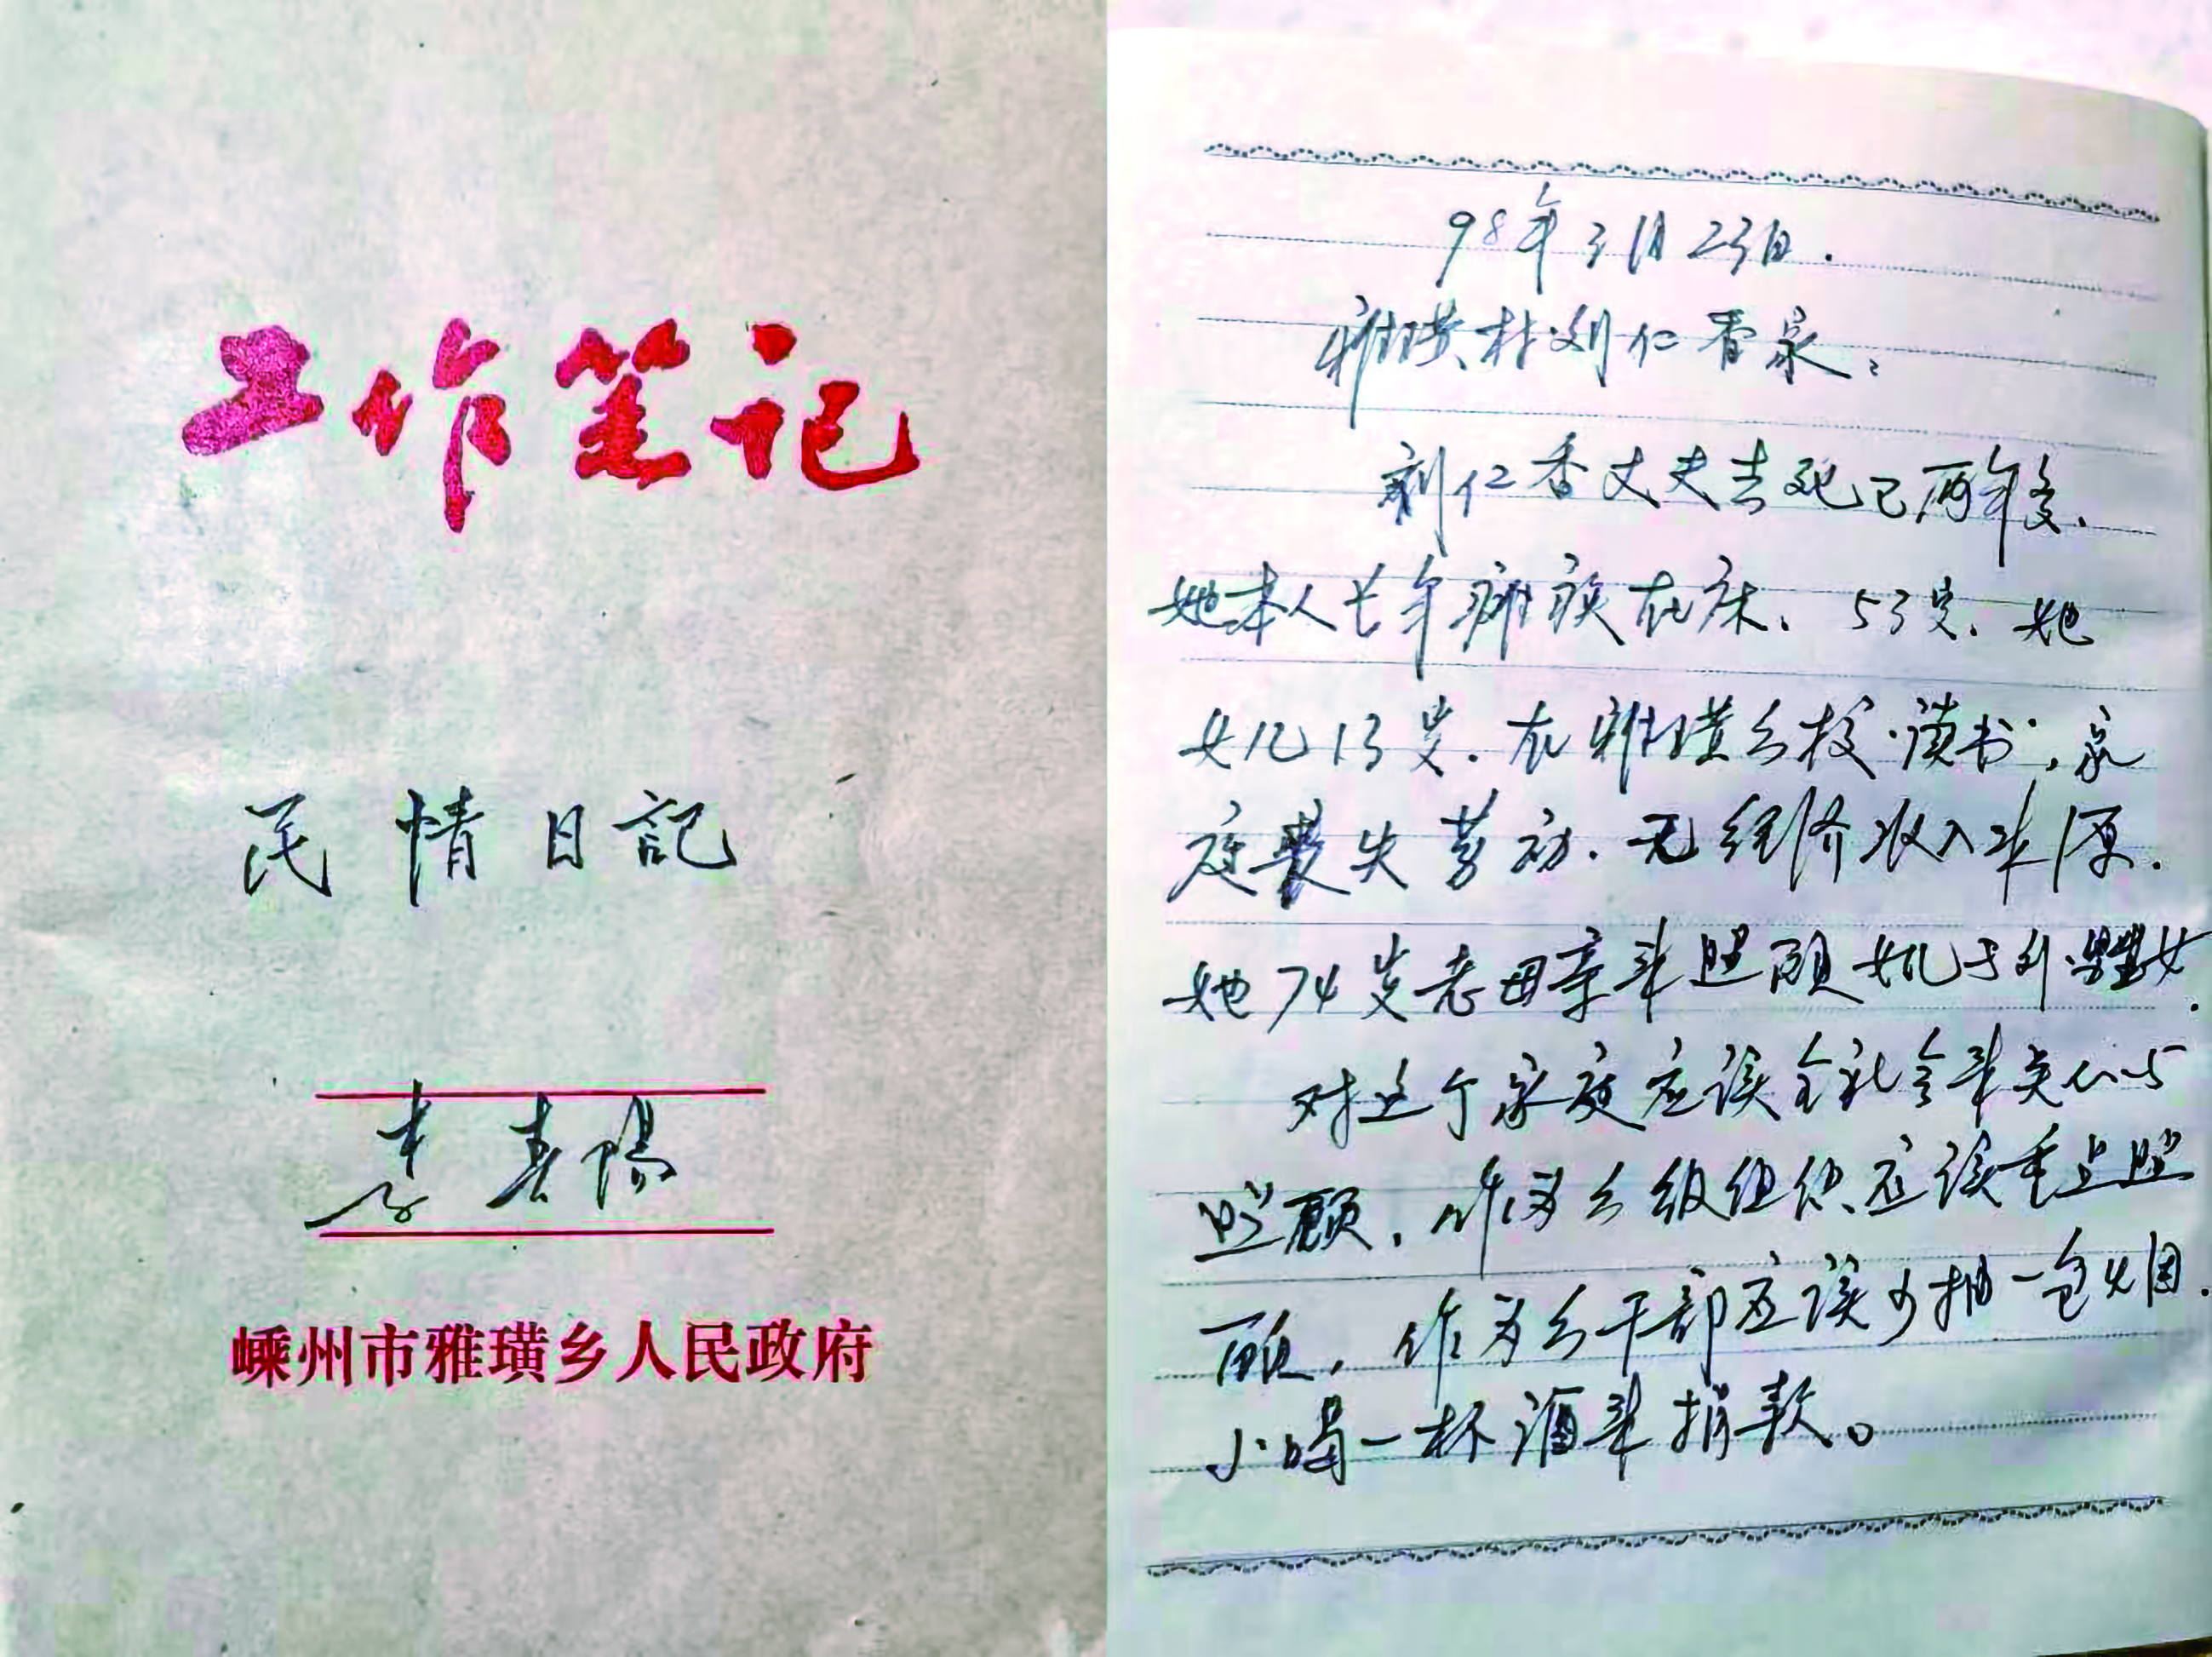 工作笔记
民情日記
李春陽
嵊州市雅璜乡人民政府
98年3月23日.
雅璜村刘仁香家:
刘仁香丈夫去死已两年多,
她本人长年瘫痪在床、53岁、她
女儿13岁、在雅璜乡校读书,家
庭丧失劳动、无经济收入来源.
她74岁老母亲来照顾女儿与外甥女.
对这个家庭应该全社会来关心与
照顾,作为乡级组织应该重点照
顾,作为乡干部应该少抽一包烟.
少喝一杯酒来捐款。